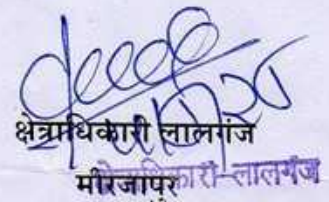 क्षेत्राधिकारी लालगंज
मीरजापुर
क्षेत्राधिकारी-लालगंज